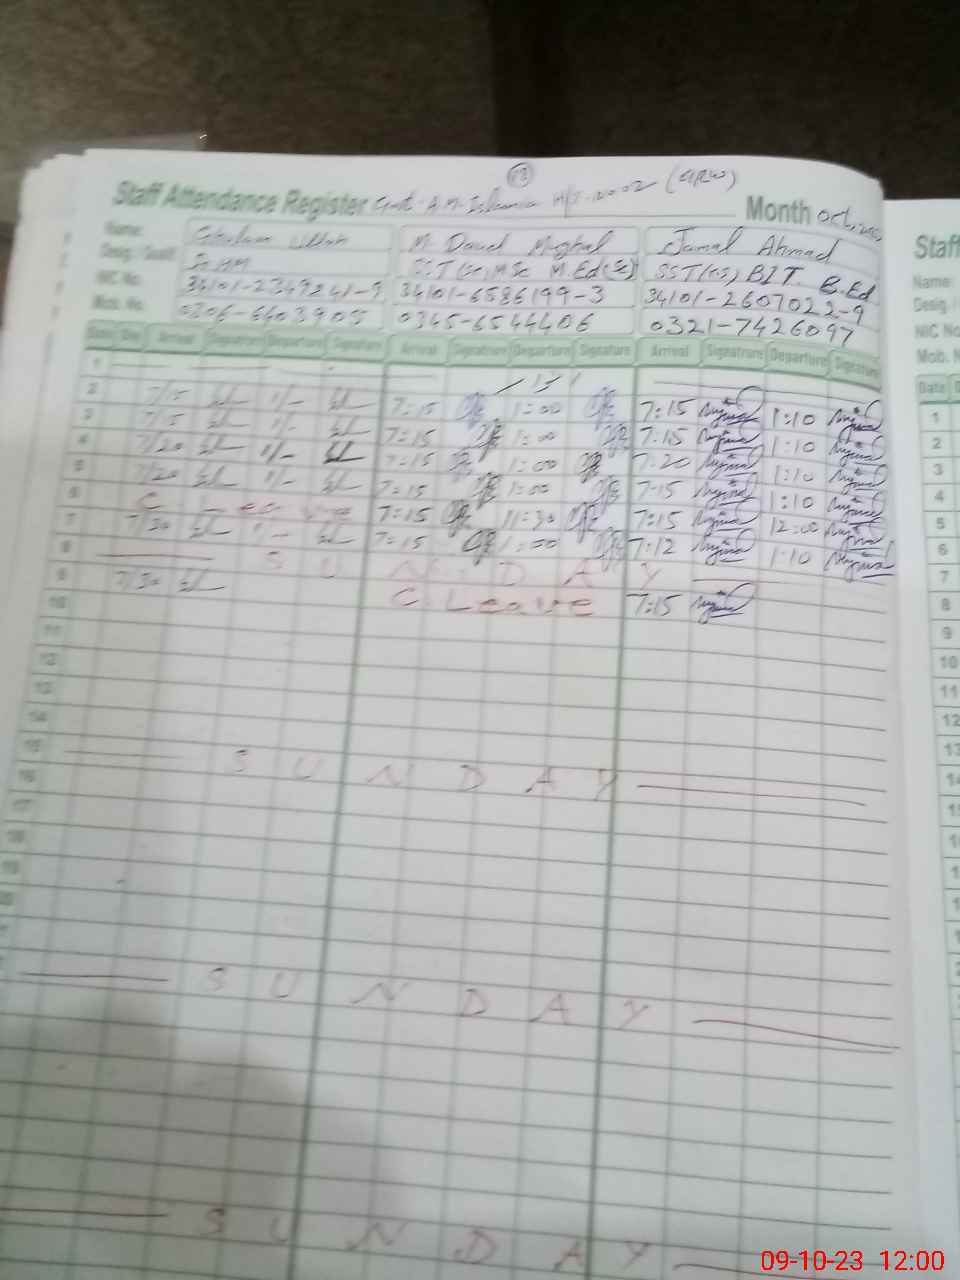 13
Staff Attendance Register Govt. A.M. Islamia H/S (GRW) Month Oct,
Name: Ghulam Ullah M. Daud Mughal Jamal Ahmad
Desig./Quali: SST(Sc) MSc M.Ed(Sc) SST(CS) BIT. B.Ed
NIC No. 34101-2349241-9 34101-6586199-3 34101-2607022-9
Mob. No. 0306-6403905 0345-6544406 0321-7426097
Date Day Arrival Signature Departure Signature Arrival Signatrure Departure Signature Arrival Signatrure Departure Signature
1
2 7/15 1/- 7=15 1=00 7:15 1:10
3 7/15 1/- 7=15 1=00 7:15 1:10
4 7/20 1/- 7=15 1=00 7:20 1:10
5 7/20 1/- 7=15 1=00 7:15 1:10
6 C Leave 7=15 11=30 7:15 12:00
7 7/30 1/- 7=15 1=00 7:12 1:10
8 S U N D A Y
9 7/30 C. Leave 7:15
10
11
12
13
14
15 S U N D A Y
16
17
18
19
20
S U N D A Y
S U N D A Y
Staff
Name:
Desig./
NIC No
Mob. N
Date
1
2
3
4
5
6
7
8
9
10
11
12
13
09-10-23 12:00